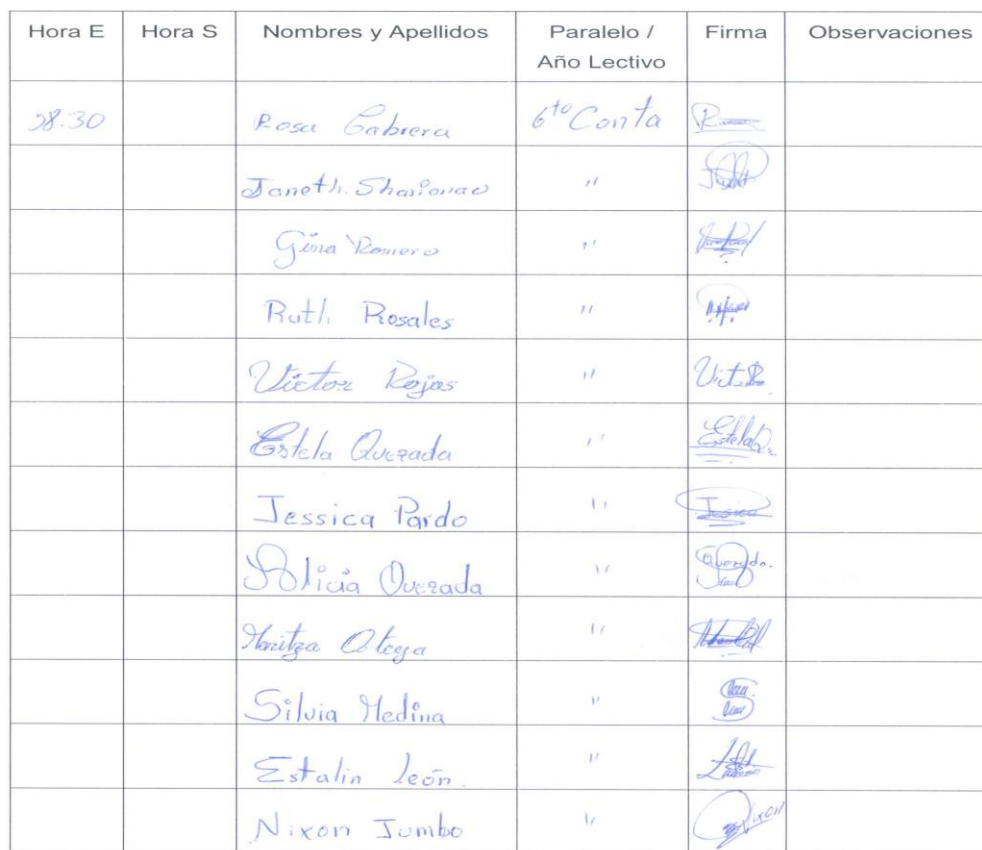 Hora E Hora S Nombres y Apellidos Paralelo / Año Lectivo Firma Observaciones
Rosa Cabrera 6to Conta
Janeth "
Gina Romero "
Ruth Rosales "
Victor Rojas " Victor R.
Estela Quezada " Estela Q.
Jessica Pardo " Jessica
Alicia Quezada " Quezada.
Maritza Ortega "
Silvia Medina "
Estalin León. "
Nixon Jumbo " Nixon